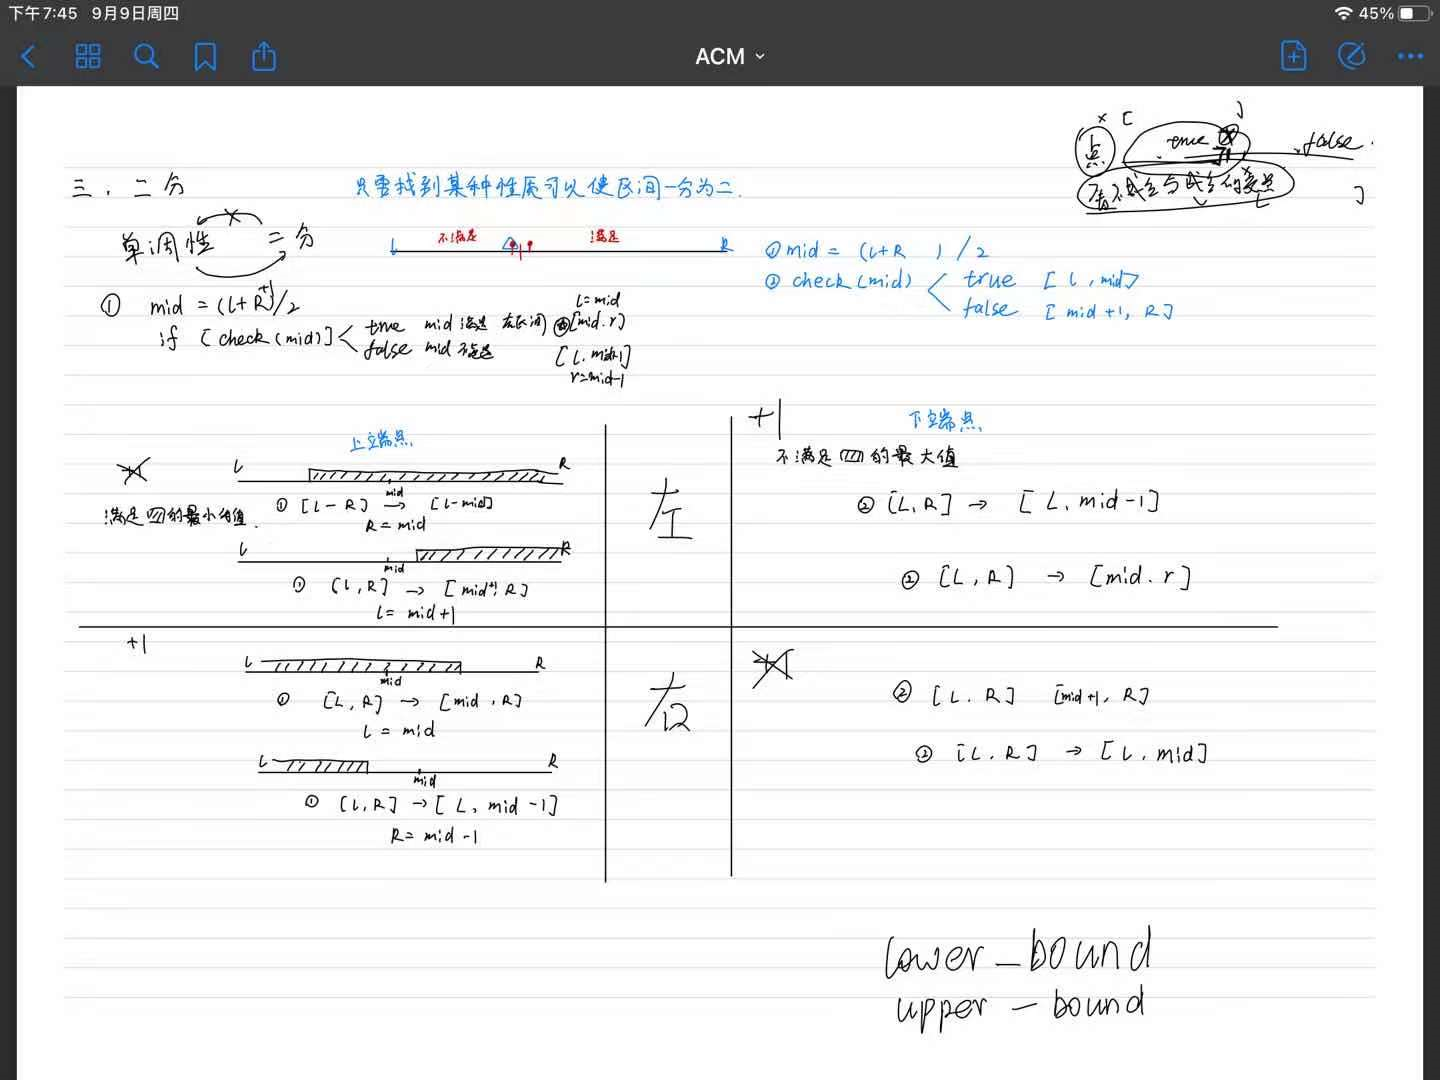 下午7:45 9月9日周四
45%
ACM
× [ ]
点 true false.
]
三、二分
只要找到某种性质可以使区间一分为二.
单调性 × 二分
L 不满足 满足 R
① mid = (L+R )/2
② check(mid) true [L, mid]
false [mid+1, R]
① mid = (L+R+1)/2
if [check(mid)] true mid满足 左区间 [mid.r]
L=mid
false mid不满足 [L, mid-1]
r=mid-1
上端点
+1
L R
mid
① [L-R] → [L-mid]
满足 的最小值.
R=mid
L R
mid
① [L,R] → [mid+1, R]
L= mid+1
左
+1
下端点
不满足 的最大值
② [L,R] → [L, mid-1]
② [L,R] → [mid.r]
+1
L R
mid
① [L,R] → [mid,R]
L = mid
L R
mid
① [L,R] → [L, mid-1]
R= mid-1
右
+1
② [L.R] [mid+1, R]
② [L.R] → [L, mid]
lower_bound
upper_bound